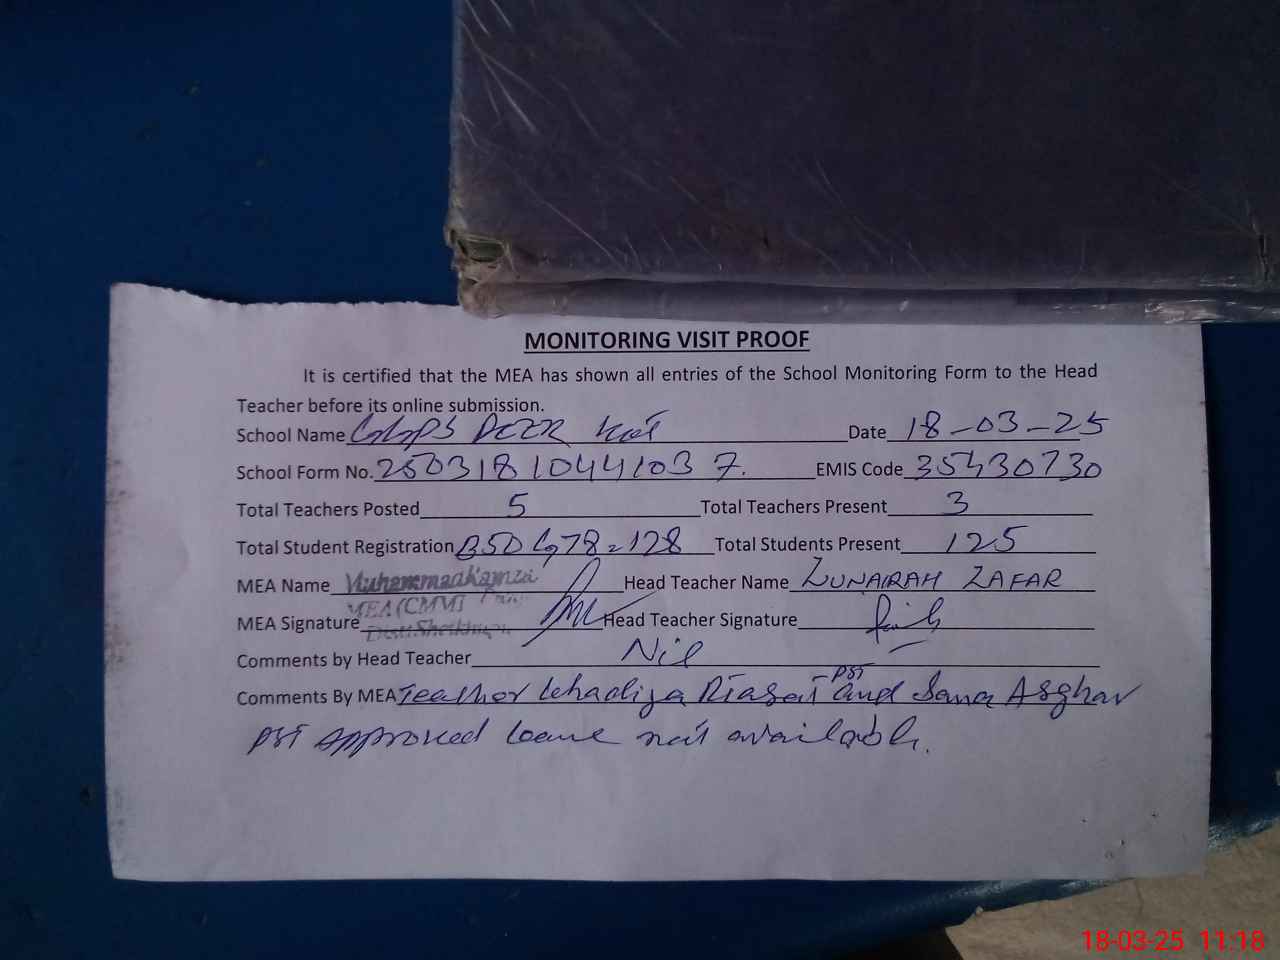 MONITORING VISIT PROOF
It is certified that the MEA has shown all entries of the School Monitoring Form to the Head
Teacher before its online submission.
School Name GGPS DEER Kot Date 18-03-25
School Form No. 2503181044103 7. EMIS Code 35430730
Total Teachers Posted 5 Total Teachers Present 3
Total Student Registration B50 G78=128 Total Students Present 125
MEA Name Muhammad Head Teacher Name ZUNAIRAH ZAFAR
MEA (CMM)
MEA Signature Head Teacher Signature
Comments by Head Teacher Nil
Comments By MEA Teacher Khadija Riasat PST and Sana Asghar
PST approved leave not available.
18-03-25 11:18